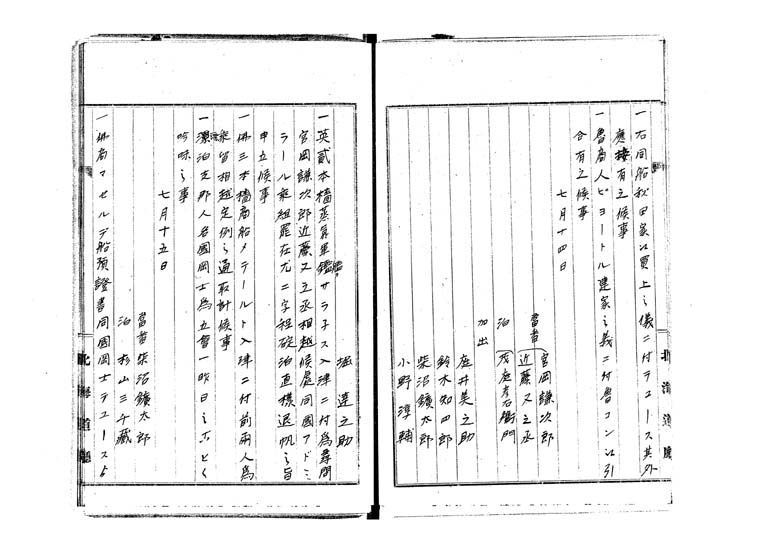 一右同船秋田家江買上之儀ニ付デュース其外
應接有之候事
一魯商人ピヨートル建家之義ニ付魯コン江引
合有之候事
七月十四日
當番 宮岡謙次郎
近藤又之丞
泊 茂庭彦右衛門
加出
庵井美之助
鈴木知四郎
柴沼鑛太郎
小野淳輔
堀達之助
一英貳本檣蒸氣軍鑑サラチス入津ニ付為尋問
宮岡謙次郎近藤又之丞相越候處同國アドミ
ラール乗組罷在尤二字程碇泊直様退帆之旨
申立候事
一佛三本檣商船メテールト入津ニ付前兩人為
相越定例之通取計候事
一瀬泊支那人各國岡士為立會一昨日之ごとく
吟味之事
七月十五日
當番 柴沼鑛太郎
泊 杉山三千藏
一佛商マセルデ船預證書同國岡士デュースよ
北海道廳